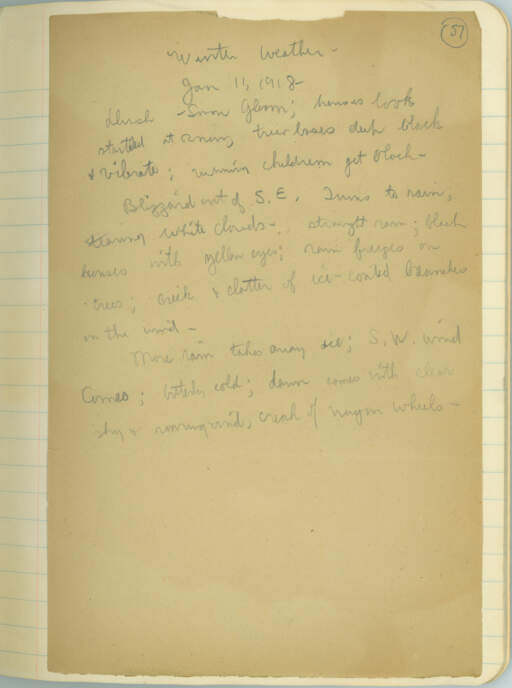 57
Winter Weather -
Jan 11, 1918 -
- Snow Gloom; houses look
startled at seeing their bases deep black
& vibrate; running children get black -
Blizzard out of S.E. Turns to rain,
white clouds - straight rain; black
houses with yellow eyes; rain freezes on
trees; creek & clatter of ice-coated branches
in the wind -
More rain takes away ice; S.W. wind
Comes; bitterly cold; dawn comes with clear
sky & roaring wind, creak of wagon wheels -